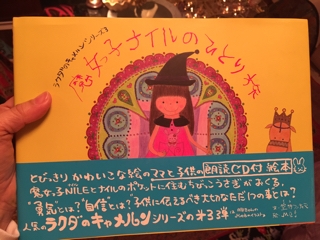 ラクダのキャメルンシリーズ3
魔女っ子ナイルのひとり旅
とびっきりかわいこな絵のママと子供の朗読CD付絵本
魔女っ子NILEとナイルのポケットに住むちびっこうさぎがめぐる
"勇気"とは？"自信"とは？子供に伝えるべき大切なただ1つの事とは？
人気のラクダのキャメルンシリーズの第3弾